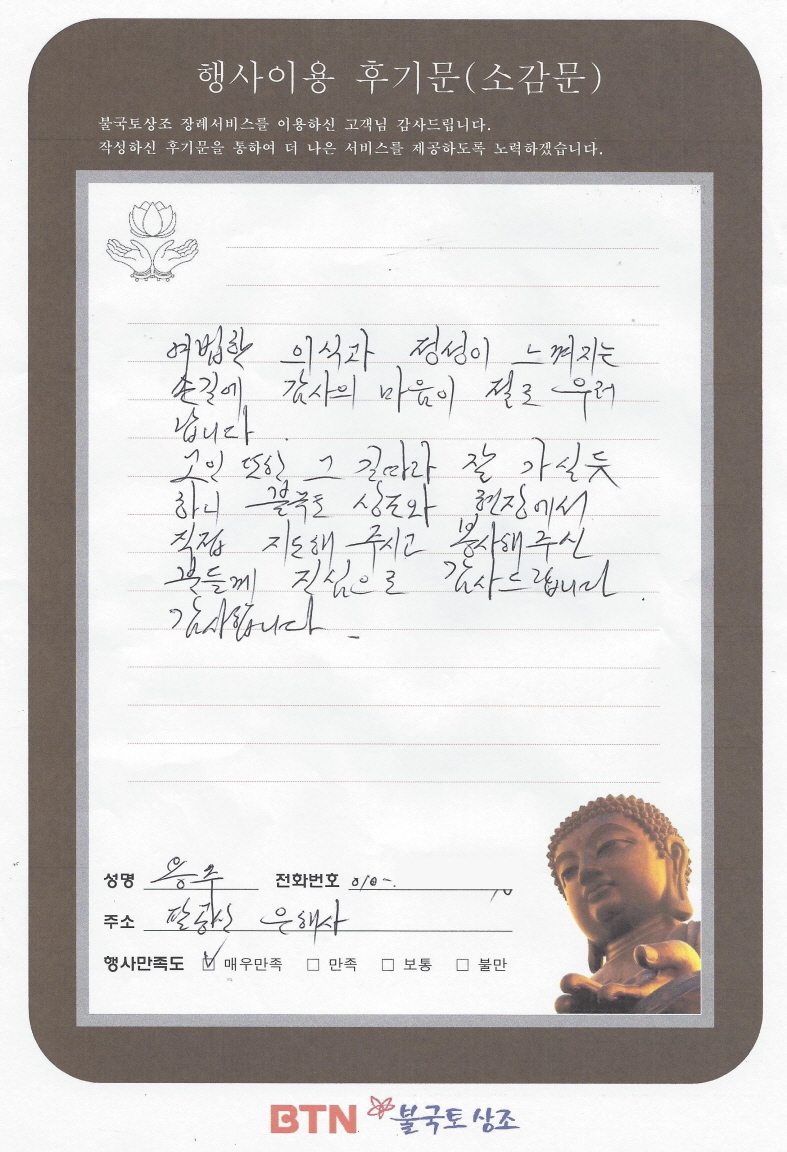 행사이용 후기문(소감문)
불국토상조 장례서비스를 이용하신 고객님 감사드립니다.
작성하신 후기문을 통하여 더 나은 서비스를 제공하도록 노력하겠습니다.
여법한 의식과 정성이 느껴지는
손길에 감사의 마음이 절로 우러
납니다.
고인 또한 그 길따라 잘 가실듯
하니 불국토 상조와 현장에서
직접 지도해 주시고 봉사해주신
분들께 진심으로 감사드립니다.
감사합니다
성명 응주 전화번호 010-.
주소 팔공산 은해사
행사만족도 ☑ 매우만족 □ 만족 □ 보통 □ 불만
BTN 불국토 상조